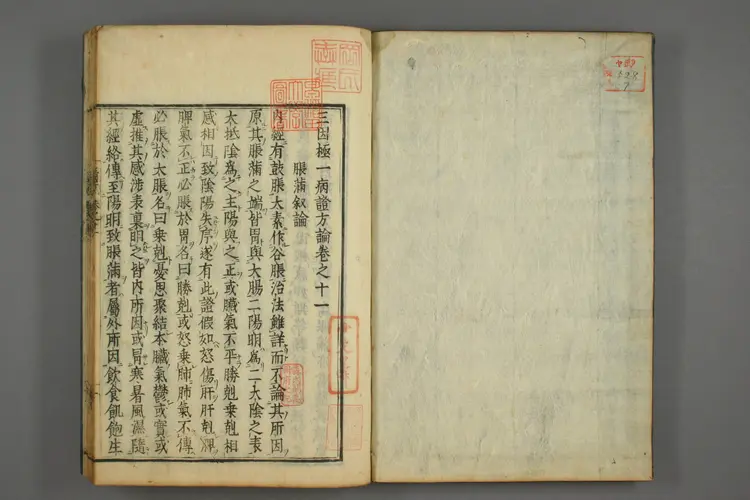 三因極一病證方論卷之十一
脹滿叙論
內經有鼓脹太素作谷脹治法雖詳而不論其所因
原其脹滿之端皆胃與大腸二陽明爲二太陰之表
大抵陰爲之主陽與之正或臟氣不平勝剋乗剋相
感相因致陰陽失序遂有此證假如怒傷肝肝剋脾
脾氣不正必脹於胃名曰勝剋或怒乗肺肺氣不傳
必脹於大腸名曰乗剋憂思聚結本臟氣鬱或實或
虛推其感涉表裏明之皆內所因或冐寒暑風濕隨
其經絡傳至陽明致脹滿者屬外所因飲食飢飽生